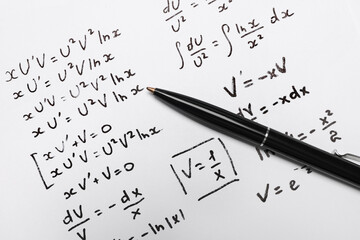 xU'V = U²V²lnx
xU' = U²V lnx
xU'V = U²V²lnx
xU' = U²V lnx
xV' + V = 0
xU'V = U²V²lnx
xV' + V = 0
dV/V = -dx/x
-ln|x|
V = 1/x
dU/U² =
∫dU/U² = ∫lnx/x² dx
V' = -xV
= -xdx
= -x²/2
V = e